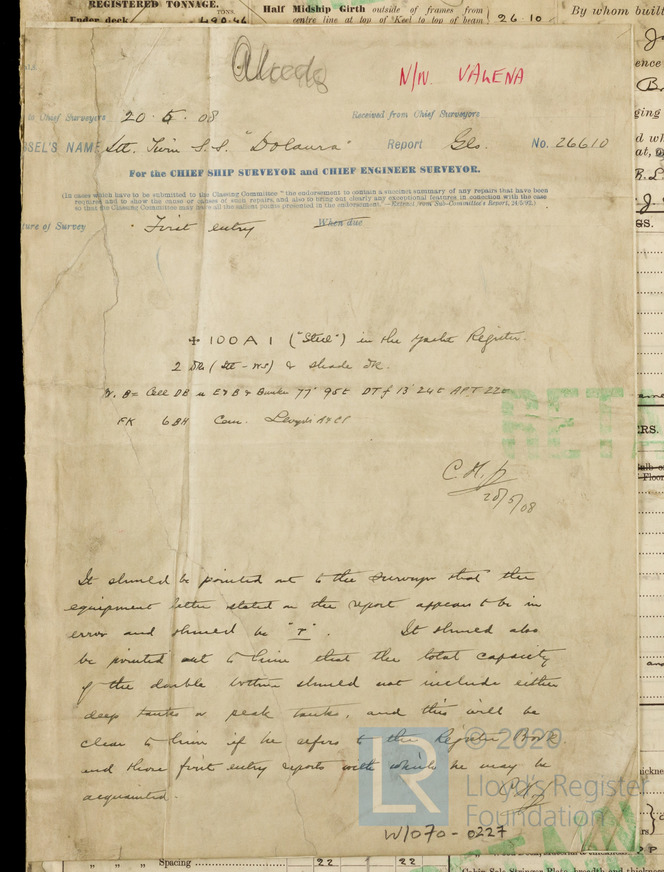 REGISTERED TONNAGE.
TONS.
Under deck 490.46
Half Midship Girth outside of frames from
centre line at top of Keel to top of beam 26.10
By whom built
N/N. VALENA
to Chief Surveyors 20.5.08
Received from Chief Surveyors
SSEL'S NAME Stl. Twin S.S. "Dolaura" Report Gls. No. 26610
For the CHIEF SHIP SURVEYOR and CHIEF ENGINEER SURVEYOR.
(In cases which have to be submitted to the Classing Committee "the endorsement to contain a succinct summary of any repairs that have been
required and to show the cause or causes of such repairs and also to bring out clearly any exceptional features in connection with the case
so that the Classing Committee may have all the salient points presented in the endorsement."—Extract from Sub-Committee's Report, 24/5/92.)
ture of Survey First entry When due
✠ 100 A 1 ("Steel") in the Yacht Register.
2 Dks (Stl - ws) & shade Dk.
W. B = Cell DB u E & B & Bunker 77' 95t DT f 13' 24t APT 22t
FK 6BH Cem. Lloyds A & CP
C.H.J.
20/5/08
It should be pointed out to the surveyor that the
equipment letter stated on the report appears to be in
error and should be "r". It should also
be pointed out to him that the total capacity
of the double bottom should not include either
deep tanks or peak tanks, and this will be
clear to him if he refers to the Register Book
and those first entry reports with which he may be
acquainted.
C.H.J.
LR
© 2020
Lloyd's Register
Foundation
W1070-0227
" " " Spacing 22 22